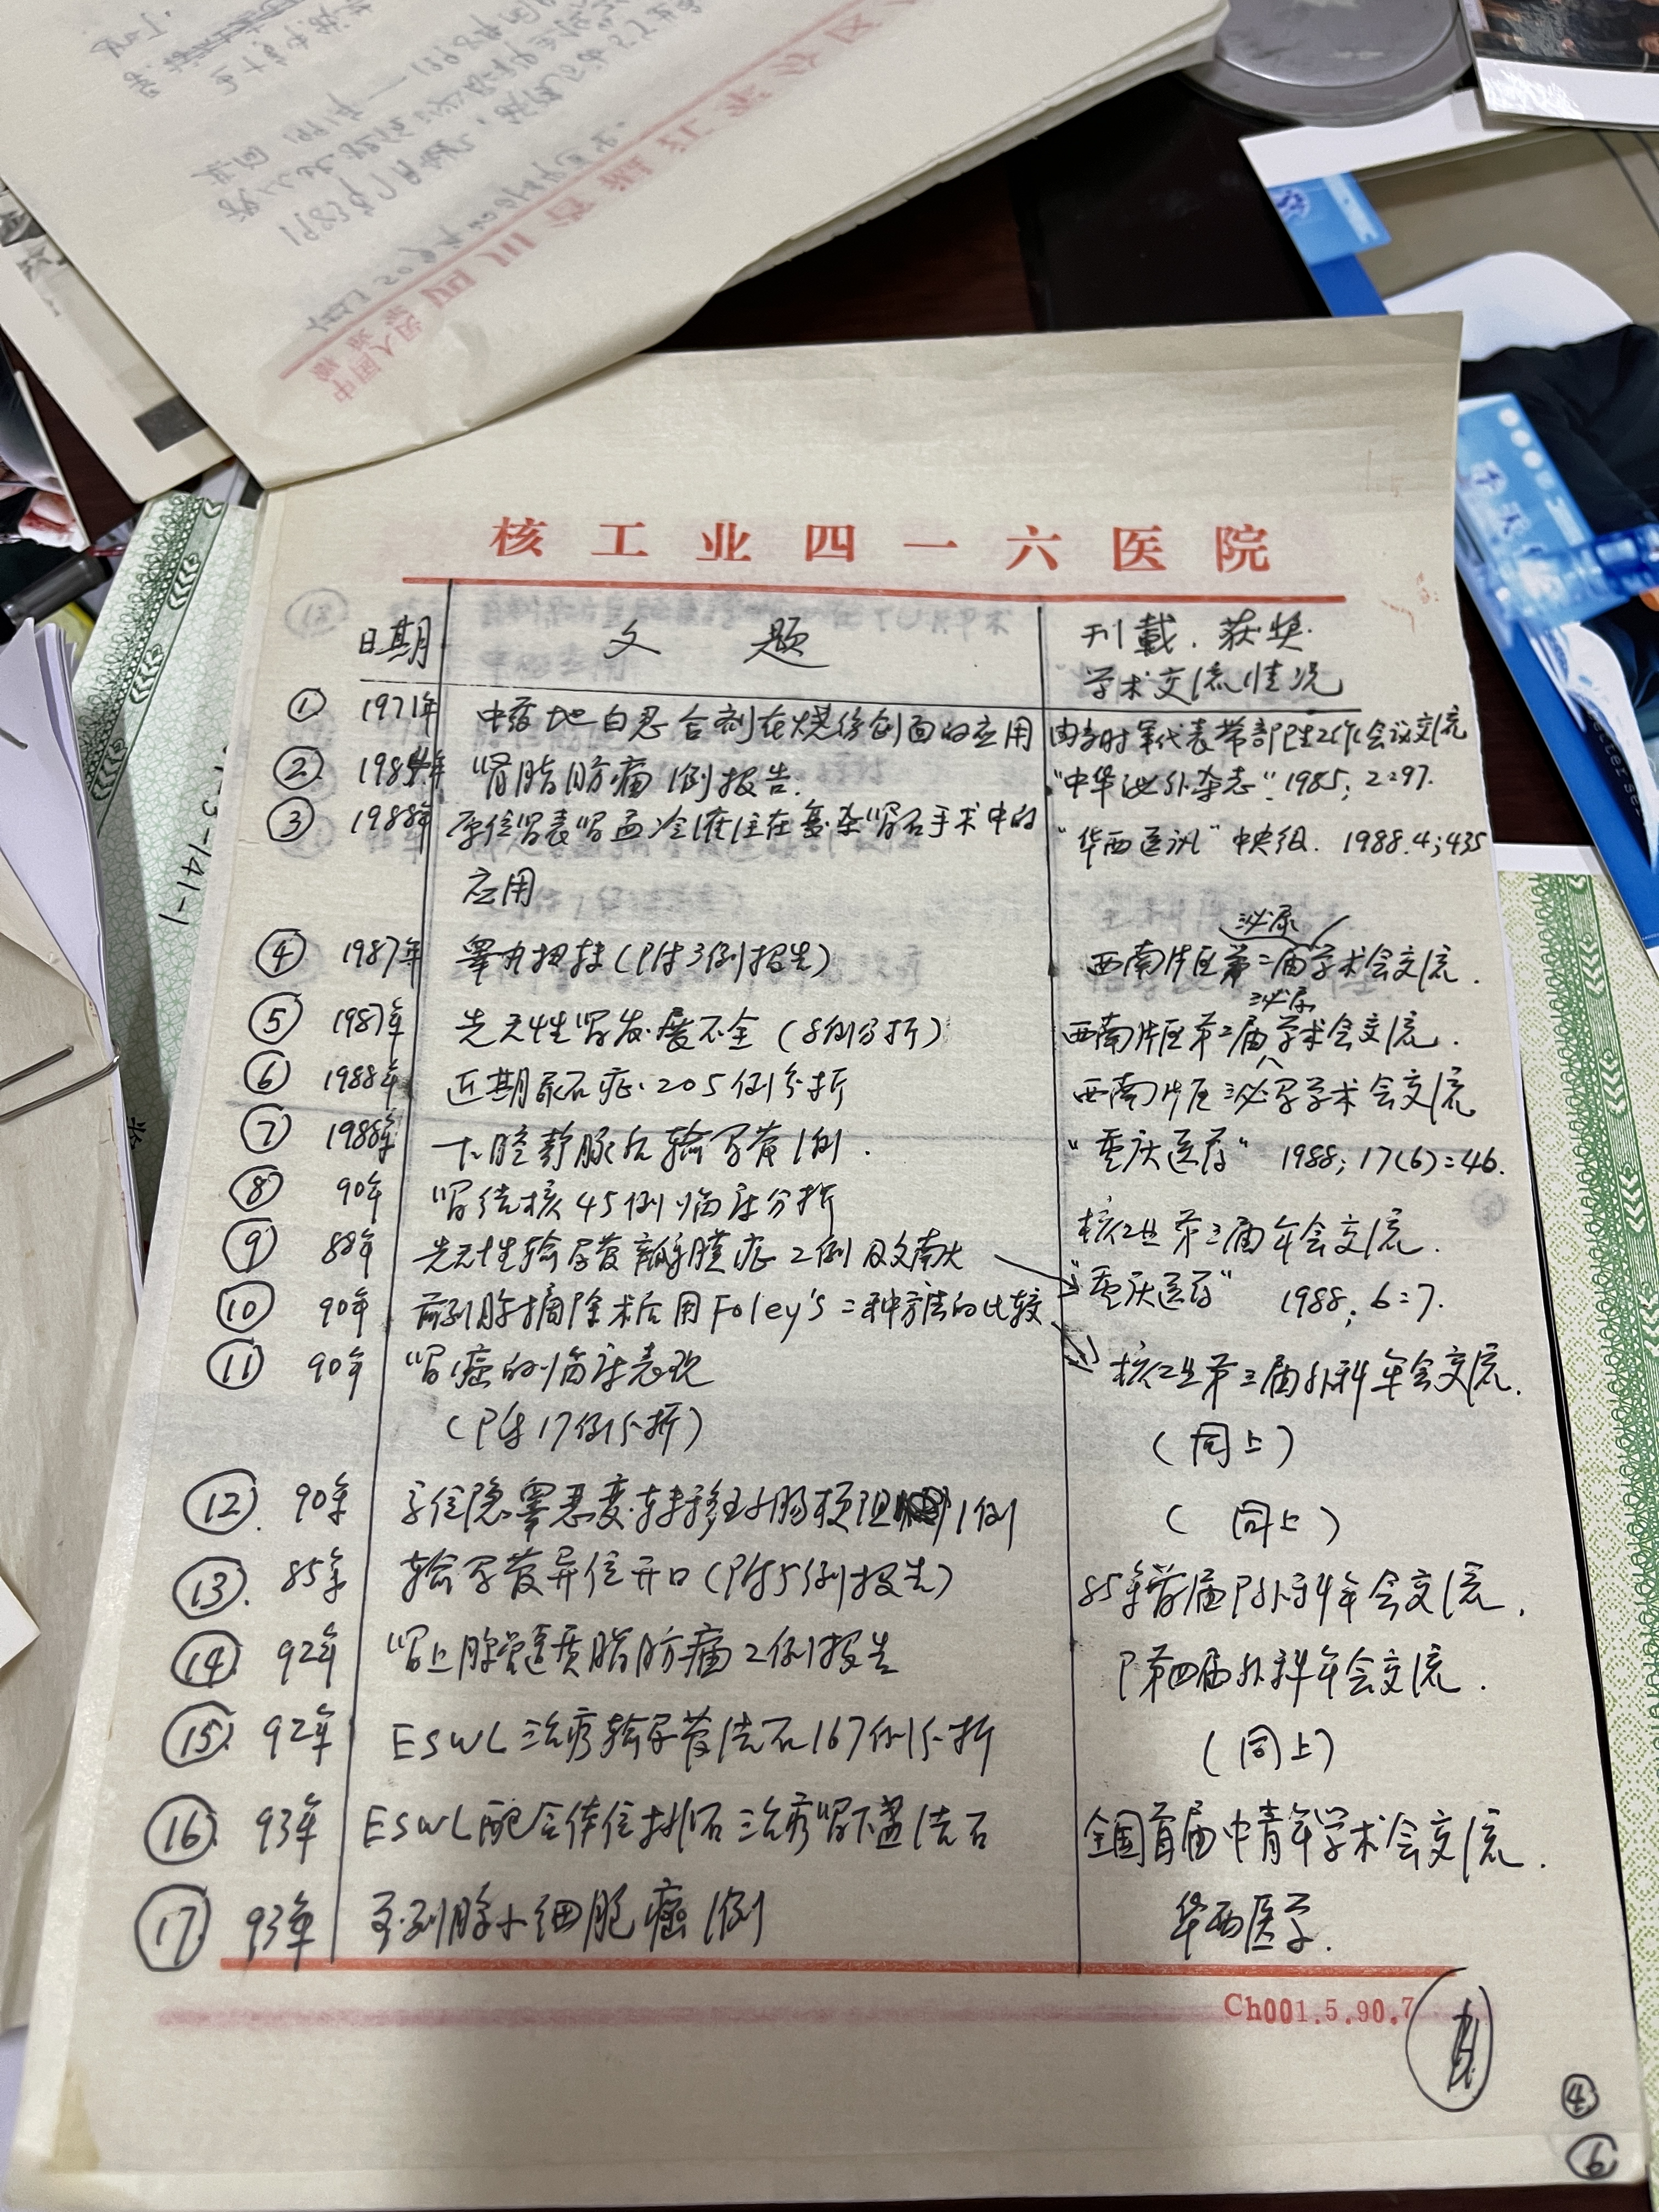 核工业四一六医院
日期 文题 刊载.获奖.
学术交流情况
① 1971年 中药地白忍合剂在烧伤创面的应用 由当时军代表带部卫生工作会议交流
② 1984年 肾脂肪瘤1例报告. "中华泌外杂志".1985;2:97.
③ 1988年 原位肾表肾盂冷灌注在复杂肾石手术中的 "华西医讯" 1988.4;435
应用
泌尿
④ 1987年 睾丸扭转(附3例报告) 西南片区第二届学术会交流.
泌尿
⑤ 1987年 先天性肾发育不全(8例分折) 西南片区第二届学术会交流.
⑥ 1988年 近期尿石症205例分折 西南片区泌尿学术会交流
⑦ 1988年 下腔静脉后输尿管1例. "重庆医药" 1988;17(6):46.
⑧ 90年 肾结核45例临床分折 核工业第三届年会交流.
⑨ 88年 先天性输尿管瓣膜症2例及文献 "重庆医药" 1988;6:7.
⑩ 90年 前列腺摘除术后用Foley's二种方法的比较 核工业第三届外科年会交流.
⑪ 90年 肾癌的临床表现
(附17例分折) (同上)
⑫. 90年 异位隐睾恶变.转移致小肠梗阻1例 (同上)
⑬. 85年 输尿管异位开口(附5例报告) 85年首届外科年会交流.
⑭. 92年 肾上腺髓质脂肪瘤2例报告 第四届外科年会交流.
⑮. 92年 ESWL治疗输尿管结石167例分折 (同上)
⑯. 93年 ESWL配合体位排石治疗肾下盏结石 全国首届中青年学术会交流.
⑰ 93年 前列腺小细胞癌1例 华西医学.
Ch001.5.90.7
④
⑥